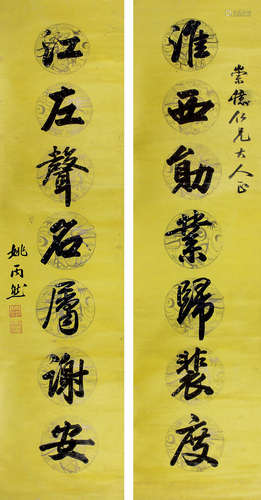 崇德仁兄大人正
淮西勛業歸裴度
江左聲名屬謝安
姚丙然